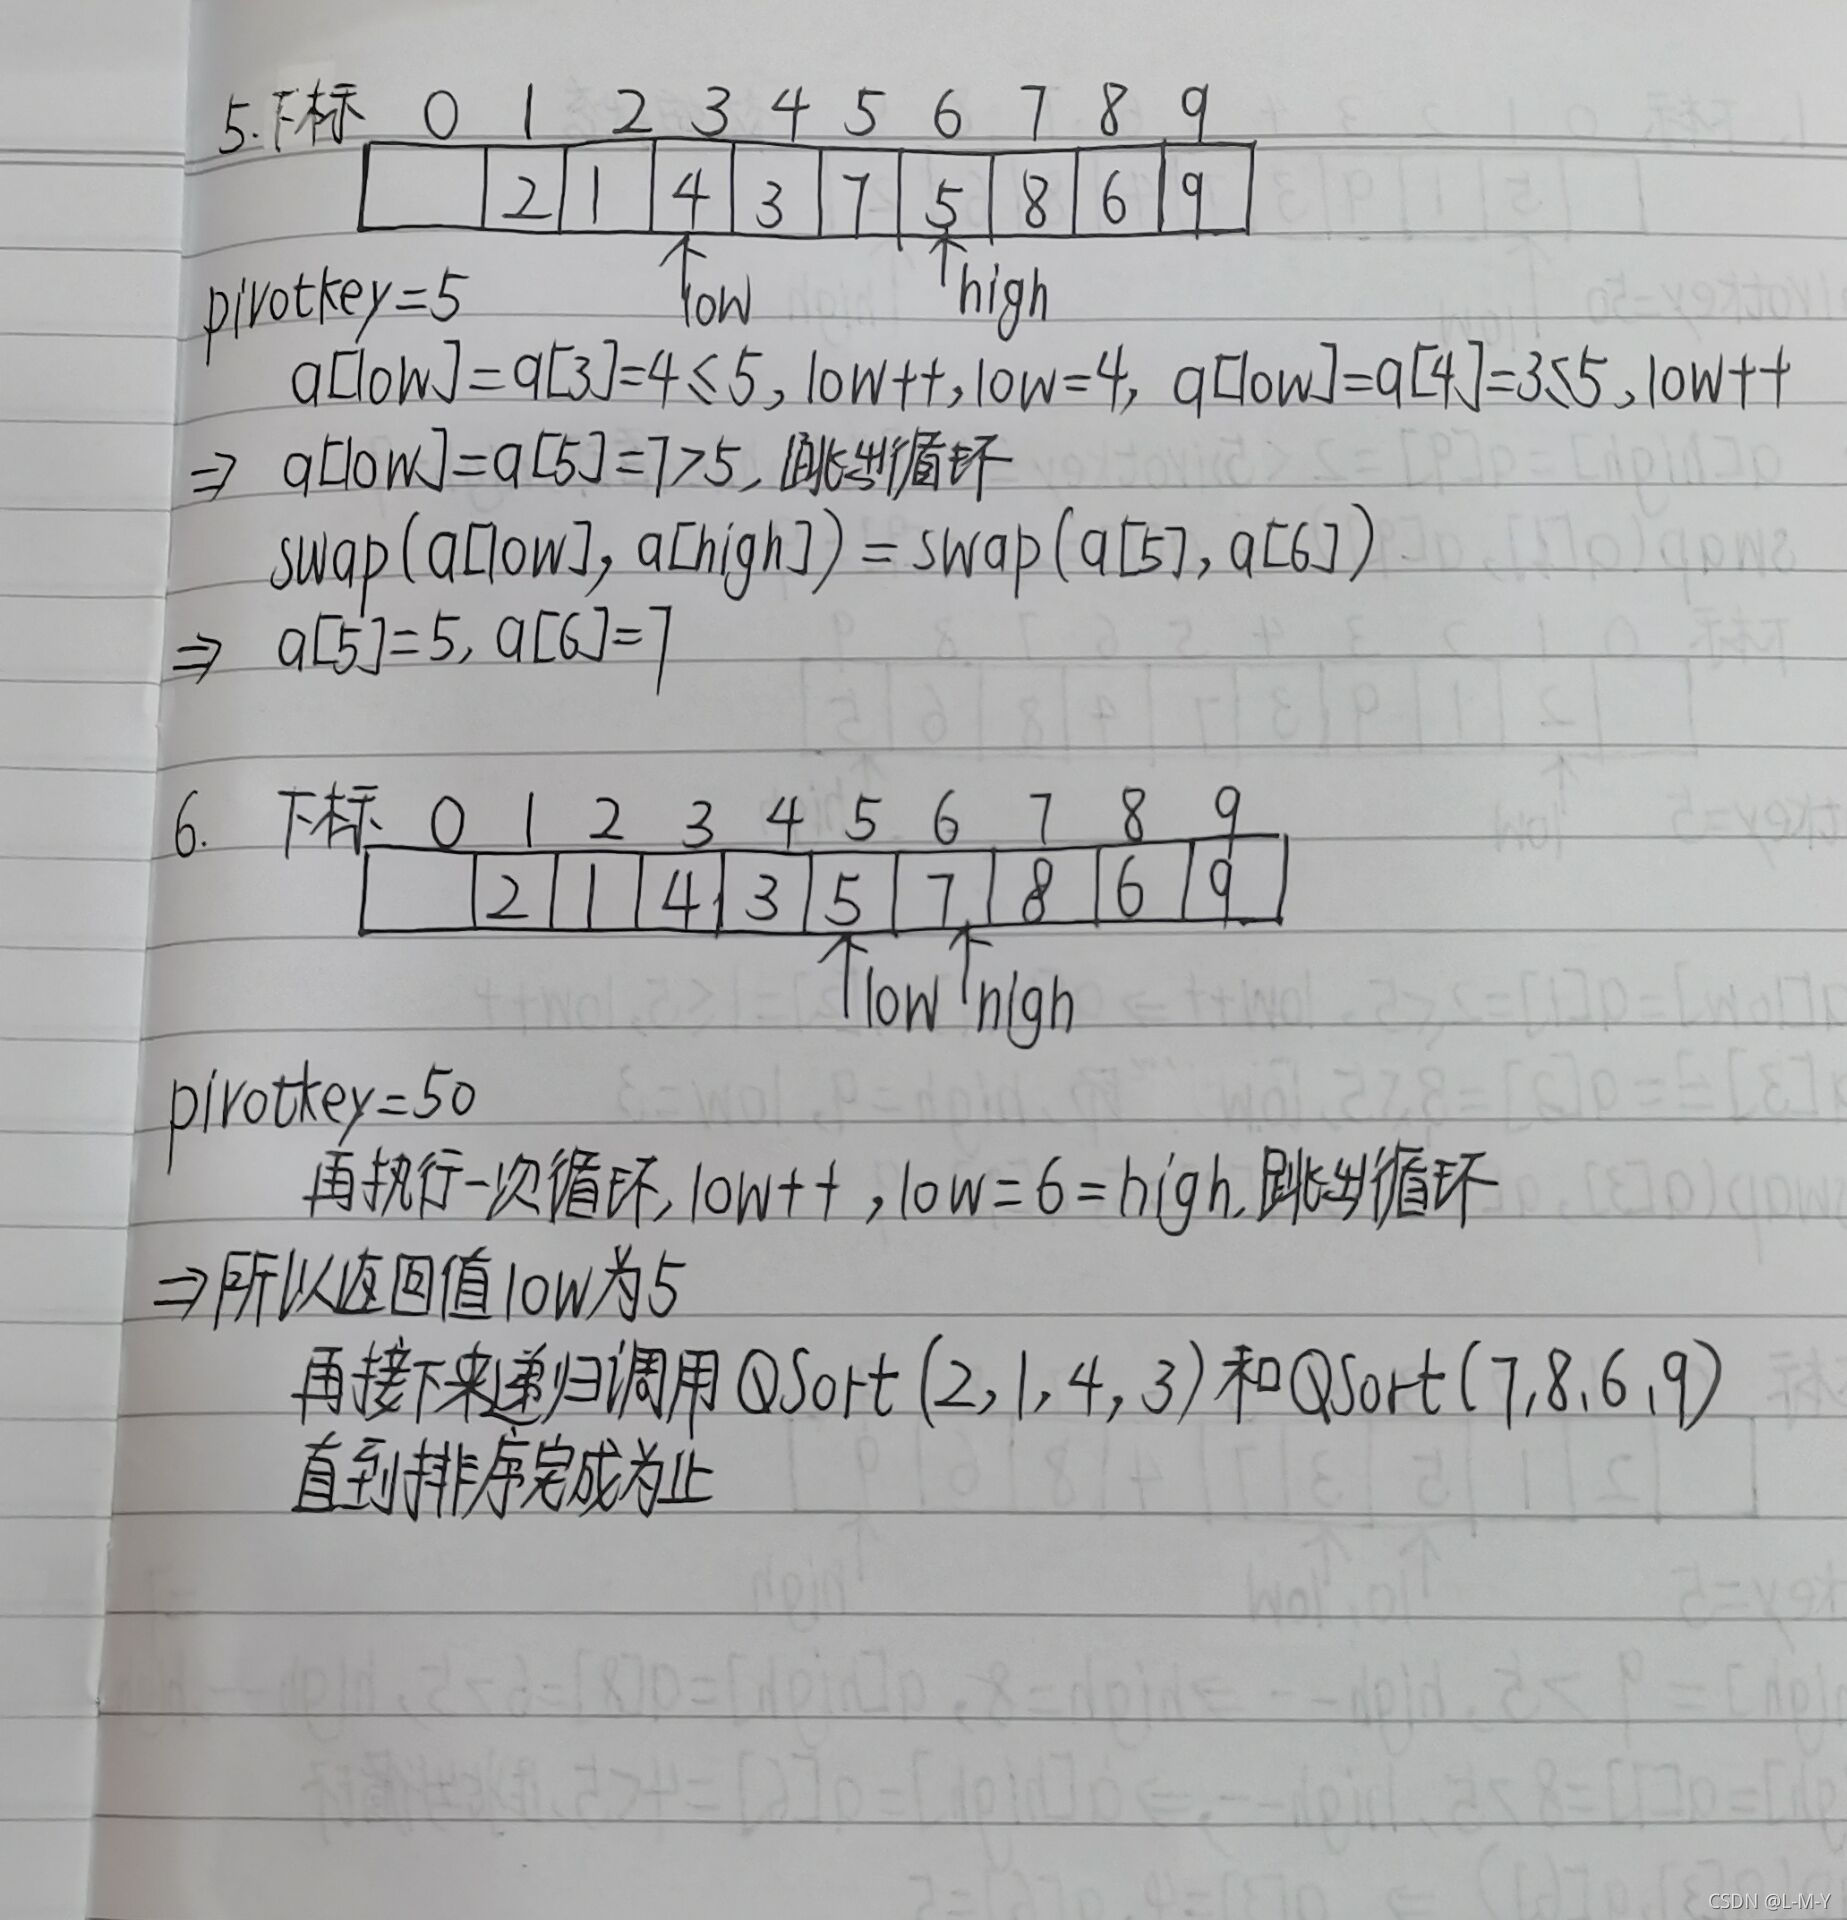 5.下标 0 1 2 3 4 5 6 7 8 9
2 1 4 3 7 5 8 6 9
low high
pivotkey=5
a[low]=a[3]=4≤5,low++,low=4, a[low]=a[4]=3≤5,low++
⇒ a[low]=a[5]=7>5,跳出循环
swap(a[low],a[high])=swap(a[5],a[6])
⇒ a[5]=5,a[6]=7
6. 下标 0 1 2 3 4 5 6 7 8 9
2 1 4 3 5 7 8 6 9
low high
pivotkey=50
再执行一次循环,low++,low=6=high,跳出循环
⇒所以返回值low为5
再接下来递归调用QSort(2,1,4,3)和QSort(7,8,6,9)
直到排序完成为止
CSDN @L-M-Y